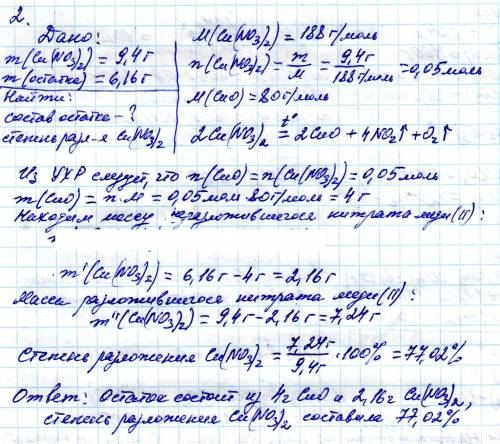 2.
Дано:
m(Cu(NO₃)₂) = 9,4 г
m(остатка) = 6,16 г
Найти:
состав остатка - ?
степень разл-я Cu(NO₃)₂
M(Cu(NO₃)₂) = 188 г/моль
n(Cu(NO₃)₂) = m/M = 9,4г/188 г/моль = 0,05 моль
M(CuO) = 80 г/моль
2Cu(NO₃)₂ =t°= 2CuO + 4NO₂↑ + O₂↑
Из УХР следует, что n(CuO) = n(Cu(NO₃)₂) = 0,05 моль
m(CuO) = n · M = 0,05 моль · 80 г/моль = 4 г
Находим массу неразложившегося нитрата меди (II):
m'(Cu(NO₃)₂) = 6,16 г - 4 г = 2,16 г
Масса разложившегося нитрата меди (II):
m''(Cu(NO₃)₂) = 9,4 г - 2,16 г = 7,24 г
Степень разложения Cu(NO₃)₂ = 7,24г/9,4г · 100% = 77,02%
Ответ: Остаток состоит из 4 г CuO и 2,16 г Cu(NO₃)₂,
степень разложения Cu(NO₃)₂ составила 77,02%